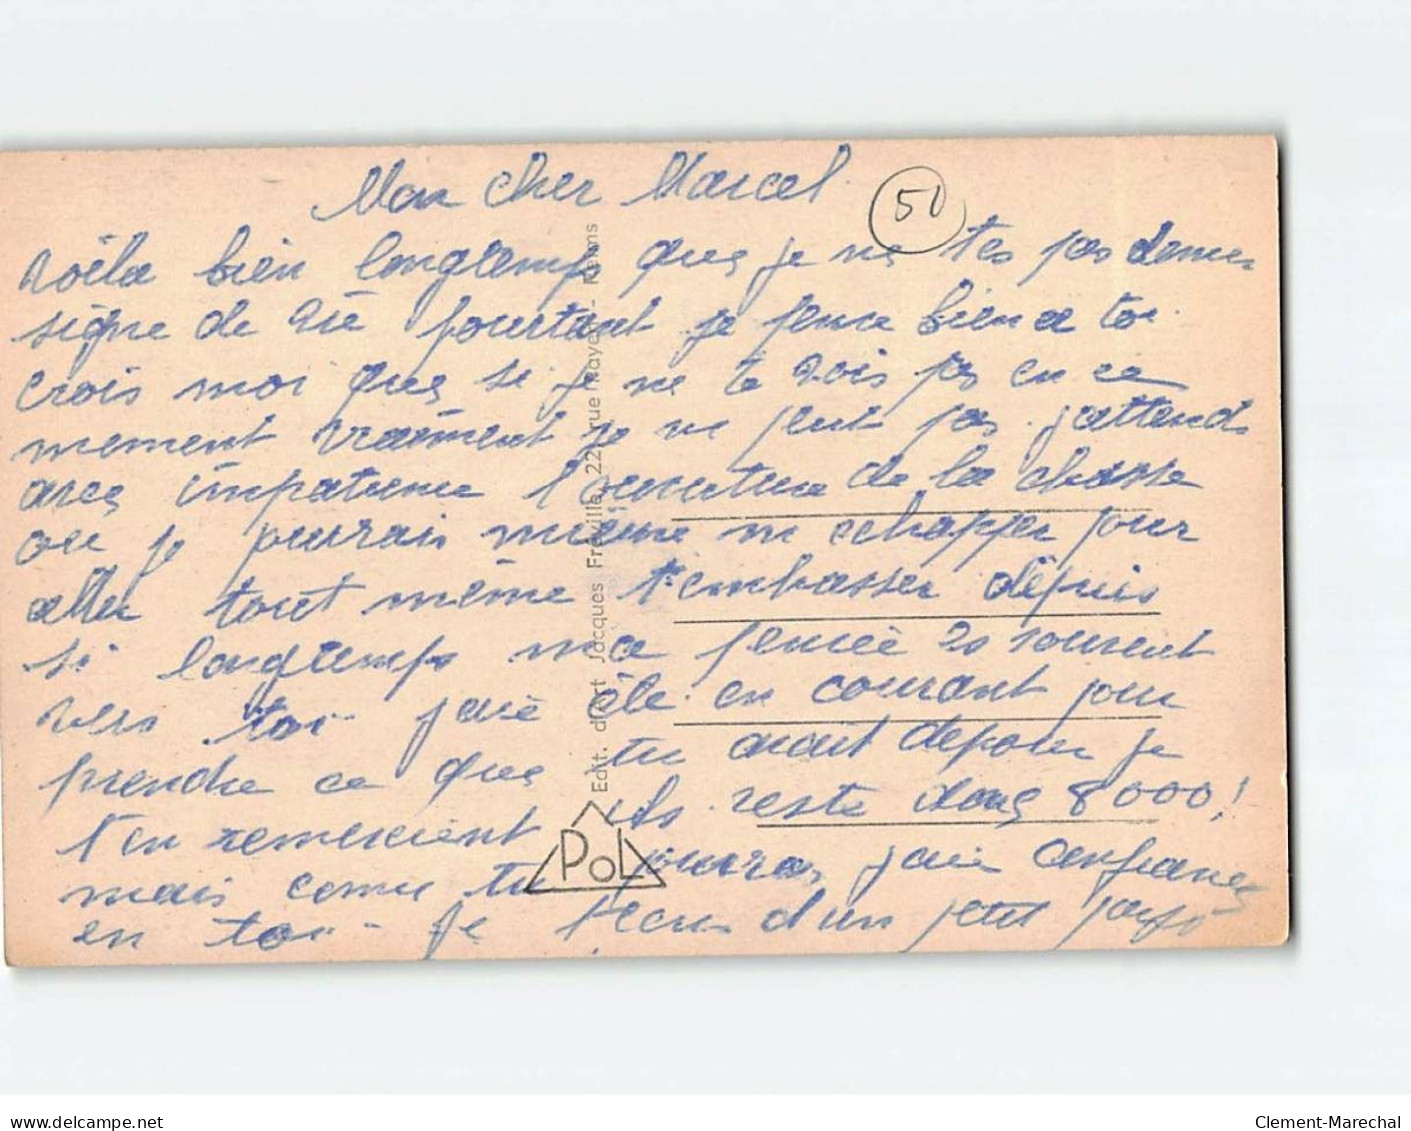 Mon cher Marcel
50
voila bien longtemps que je ne tes pas donner
signe de vie pourtant je pense bien a toi.
crois moi que si je ne te vois pas en ce
moment vraiment je ne peut pas. jattends
avec impatience l'ouverture de la chasse
ou je pourrais même m echapper pour
aller tout même t'embrasser depuis
si longtemps ma pensée es souvent
vers toi. jaie été en courant pour
prendre ce que tu avait deposer je
t'en remerciant reste donc 8000!
mais comme tu pourras jaie confiance
en toi. je d'un petit pays
Edit. d'Art Jacques Fréville, 22, rue Mayer - Reims
PoL
www.delcampe.net
Clement-Marechal